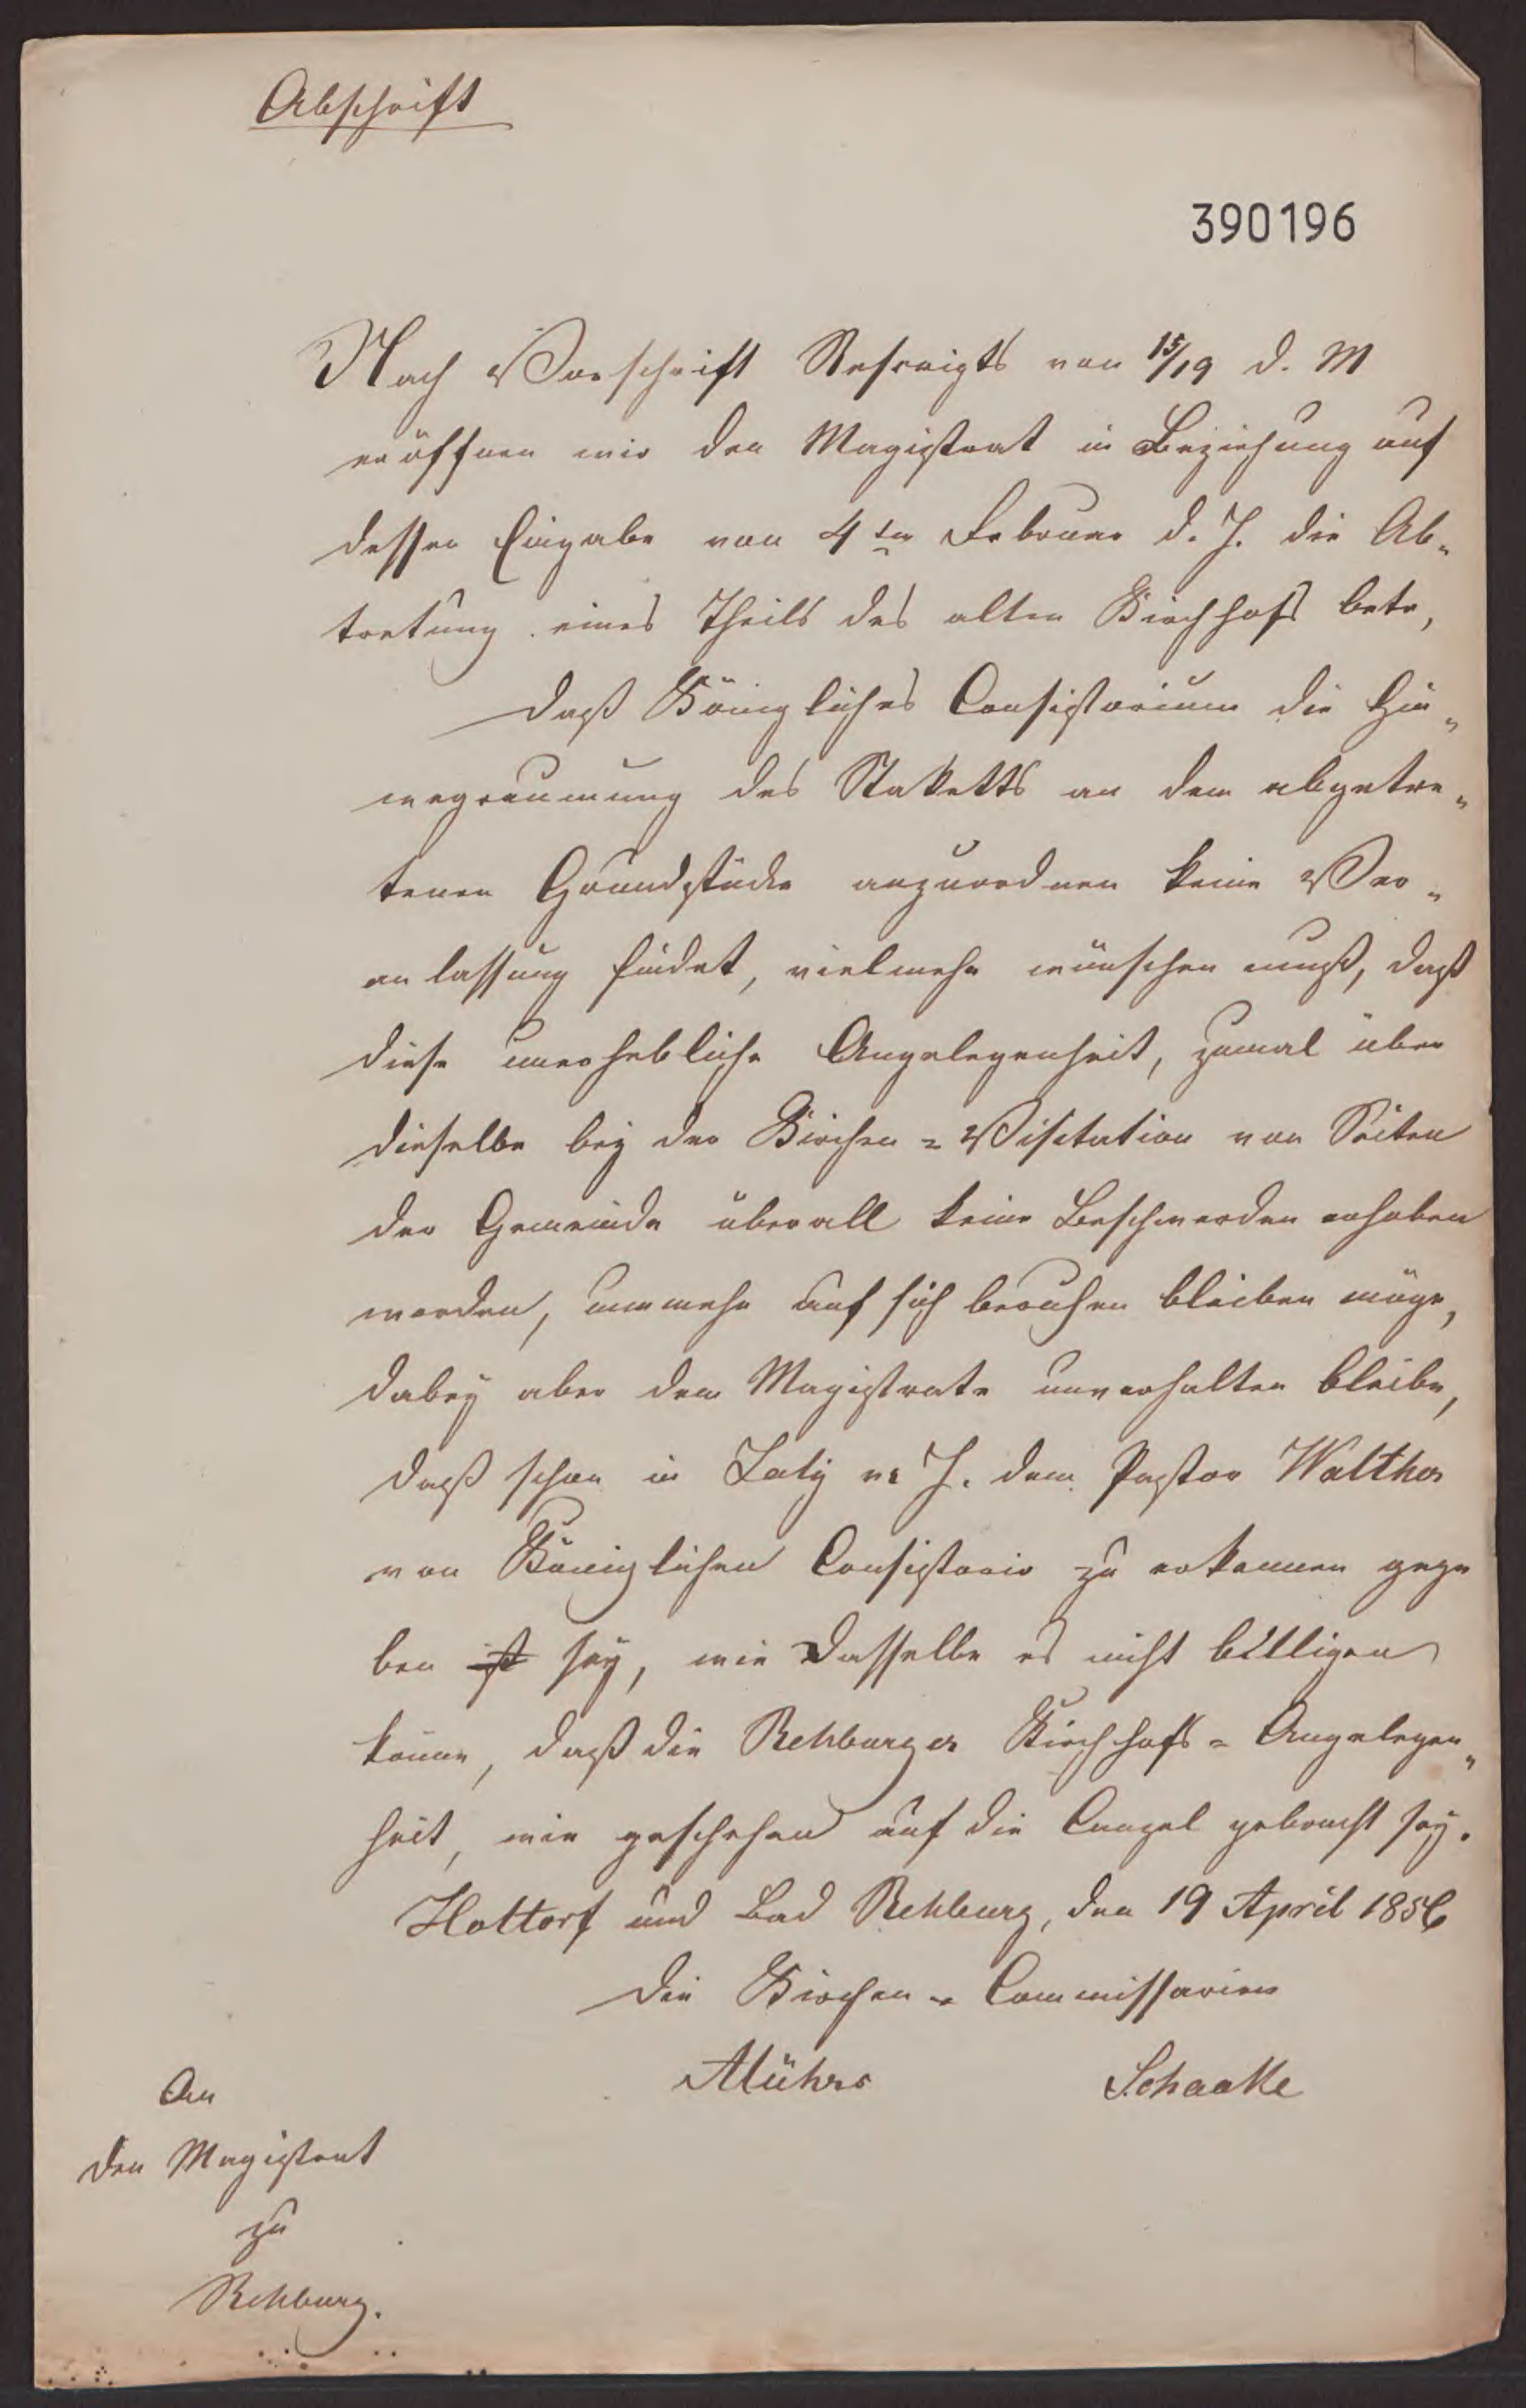 Abschrift
390196
Nach Vorschrift Rescripts von 15/19 d. M
eröffnen wir den Magistrat in Beziehung auf
dessen Eingabe von 4ten Februar d. J. die Ab-
tretung eines Theils des alten Kirchhofs betr,
daß Königliches Consistorium die Hin-
wegräumung des Staketts an dem abgetre-
tenen Grundstücke anzuordnen keine Ver-
anlassung findet, vielmehr wünschen muß, daß
diese unerhebliche Angelegenheit, zumal über
dieselbe bey der Kirchen-Visitation von Seiten
der Gemeinde überall keine Beschwerden erhoben
worden, nunmehr auf sich beruhen bleiben möge,
dabey aber dem Magistrate unverhalten bleibe,
daß schon in July v. J. dem Pastor Walther
von Königlichen Consistorio zu erkennen gege
ben ist sey, wie dasselbe es nicht billigen
könne, daß die Rehburger Kirchhofs-Angelegen-
heit, wie geschehen auf die Canzel gebracht sey.
Holtorf und Bad Rehburg, den 19 April 1856
Die Kirchen-Commissarien
Mührs Schaake
An
den Magistrat
zu
Rehburg.